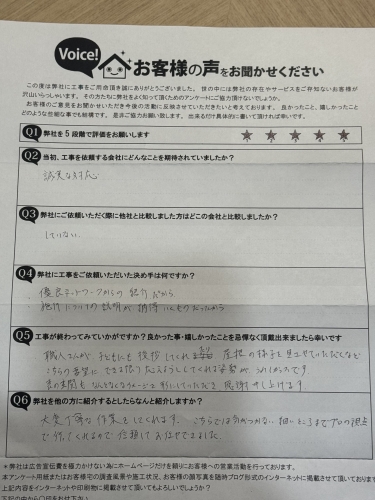 Voice!
お客様の声をお聞かせください
この度は弊社に工事をご用命頂き誠にありがとうございました。 世の中には弊社の存在やサービスをご存知ないお客様が
沢山いらっしゃいます。その方たちに弊社をよく知って頂くためのアンケートにご協力頂けないでしょうか。
お客様のご意見をお聞かせいただき今後の活動に反映させていただきたいと考えております。 良かったこと、嬉しかったこと
どのような些細な事でも結構です。 是非ご協力お願い致します。 出来るだけ具体的に書いて頂ければ幸いです。
Q1 弊社を5段階で評価をお願いします ★ ★ ★ ★ ★
Q2 当初、工事を依頼する会社にどんなことを期待されていましたか?
誠実な対応
Q3 弊社にご依頼いただく際に他社と比較しました方はどこの会社と比較しましたか?
していない
Q4 弊社に工事をご依頼いただいた決め手は何ですか?
・優良ネットワークからの紹介だから
・についての説明が納得いくものだったから
Q5 工事が終わってみていかがですか?良かった事・嬉しかったことを忌憚なく頂戴出来ましたら幸いです
職人さんが子どもにも挨拶してくれる 屋根の様子を見せていただくなど
こちらの要望にできる限りこたえようとしてくれる姿勢がうれしかったです
感謝申し上げます
Q6 弊社を他の方に紹介するとしたらなんと紹介しますか?
大変丁寧な作業をしてくれます。こちらでは気がつかない細いところまでプロの視点
で行ってくれるので信頼してお任せできました。
*弊社は広告宣伝費を極力かけない為にホームページだけを頼りにお客様への営業活動を行っております。
本アンケート用紙またはお客様宅の調査風景や施工状況、お客様の顔写真を随時ブログ形式のインターネットに掲載させて頂いております
上記内容をインターネットや印刷物に掲載させて頂いてもよろしいでしょうか?